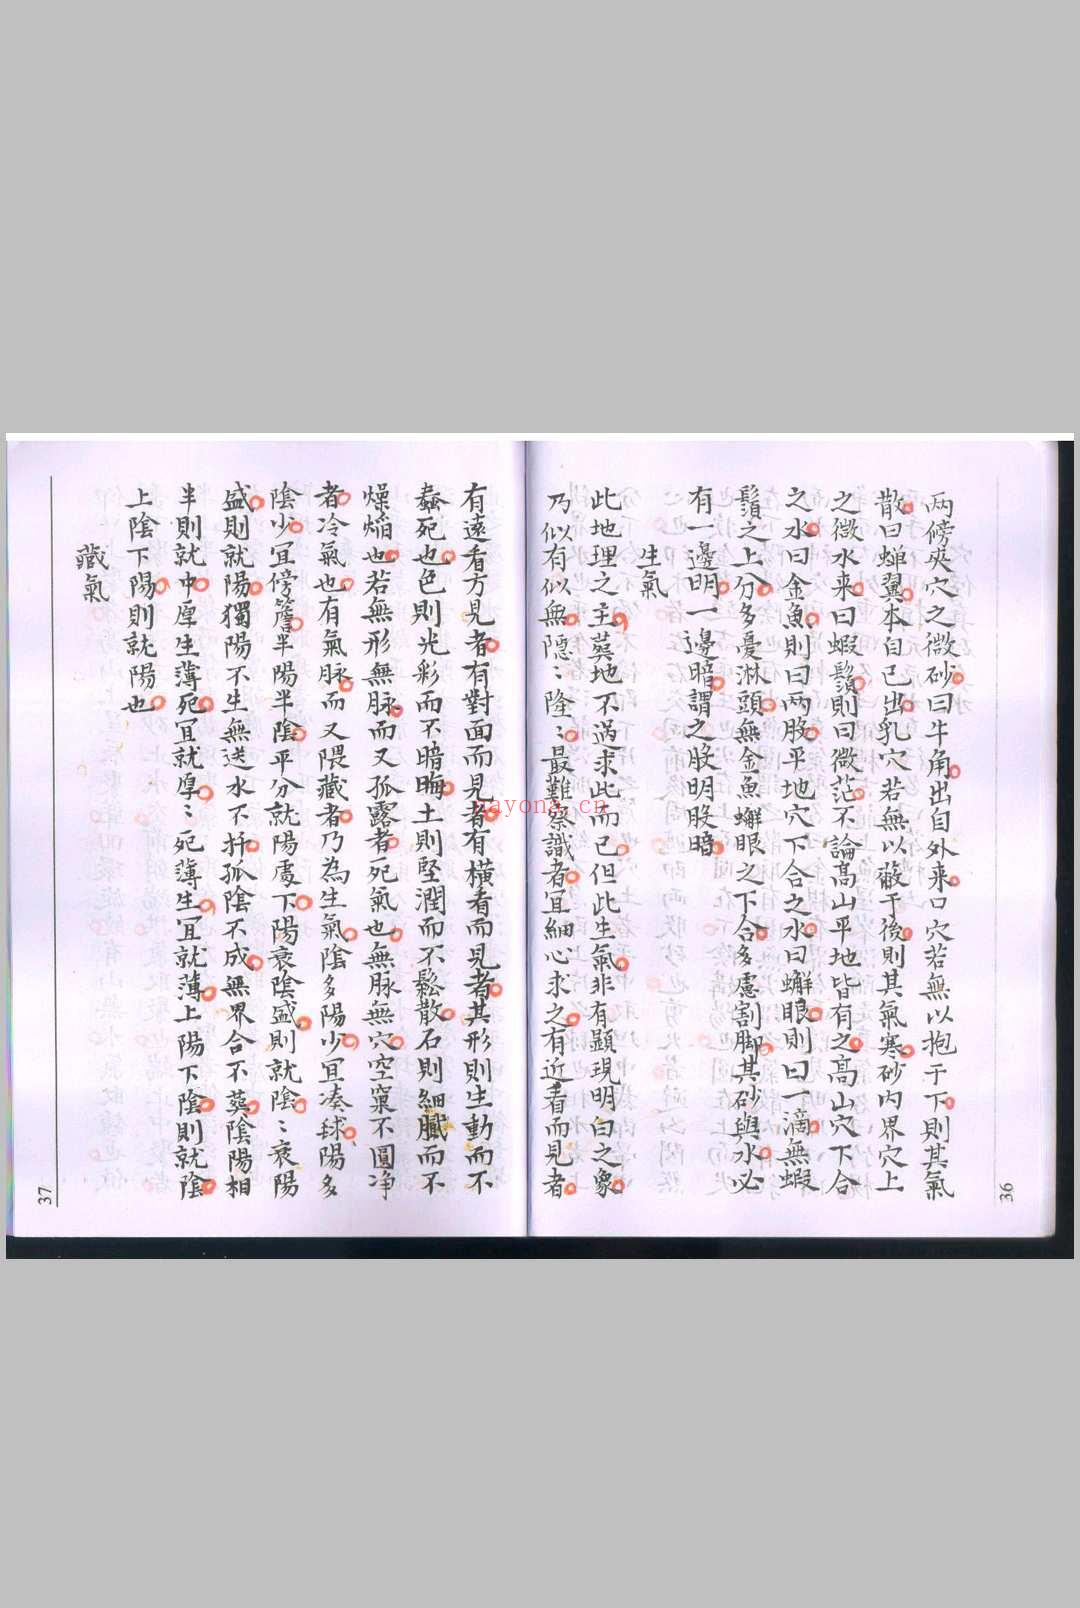 两傍夾穴之微砂曰牛角出自外来口穴若無以抱于下則其氣
散曰蝉翼本自已出乳穴若無以蔽于後則其氣寒砂内界穴上
之微水来曰蝦鬚則曰微茫不論高山平地皆有之高山穴下合
之水曰金魚則曰两股平地穴下合之水曰蠏眼則曰一滴無蝦
鬚之上分多憂淋頭無金魚蠏眼之下合多慮割脚其砂與水必
有一邊明一邊暗謂之股明股暗
生氣
此地理之主葬地不過求此而已但此生氣非有顯現明白之象
乃似有似無隠〻隆〻最難察識者宜細心求之有近看而見者
36
有遠看方見者有對面而見者有横看而見者其形則生動而不
蠢死也色則光彩而不暗晦土則堅潤而不鬆散石則細膩而不
燥熖也若無形無脉而又孤露者死氣也無脉無穴空窠不圓净
者冷氣也有氣脉而又隈藏者乃為生氣陰多陽少宜凑毬陽多
陰少宜傍簷半陽半陰平分就陽處下陽衰陰盛則就陰〻衰陽
盛則就陽獨陽不生無送水不扦孤陰不成無界合不葬陰陽相
半則就中厚生薄死宜就厚〻死薄生宜就薄上陽下陰則就陰
上陰下陽則就陽也
藏氣
37
nayona.cn